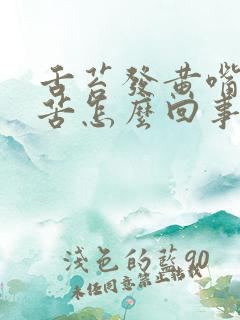 舌苔發黄嘴
苦怎麽回事
淺色的藍90
未经同意禁止转载